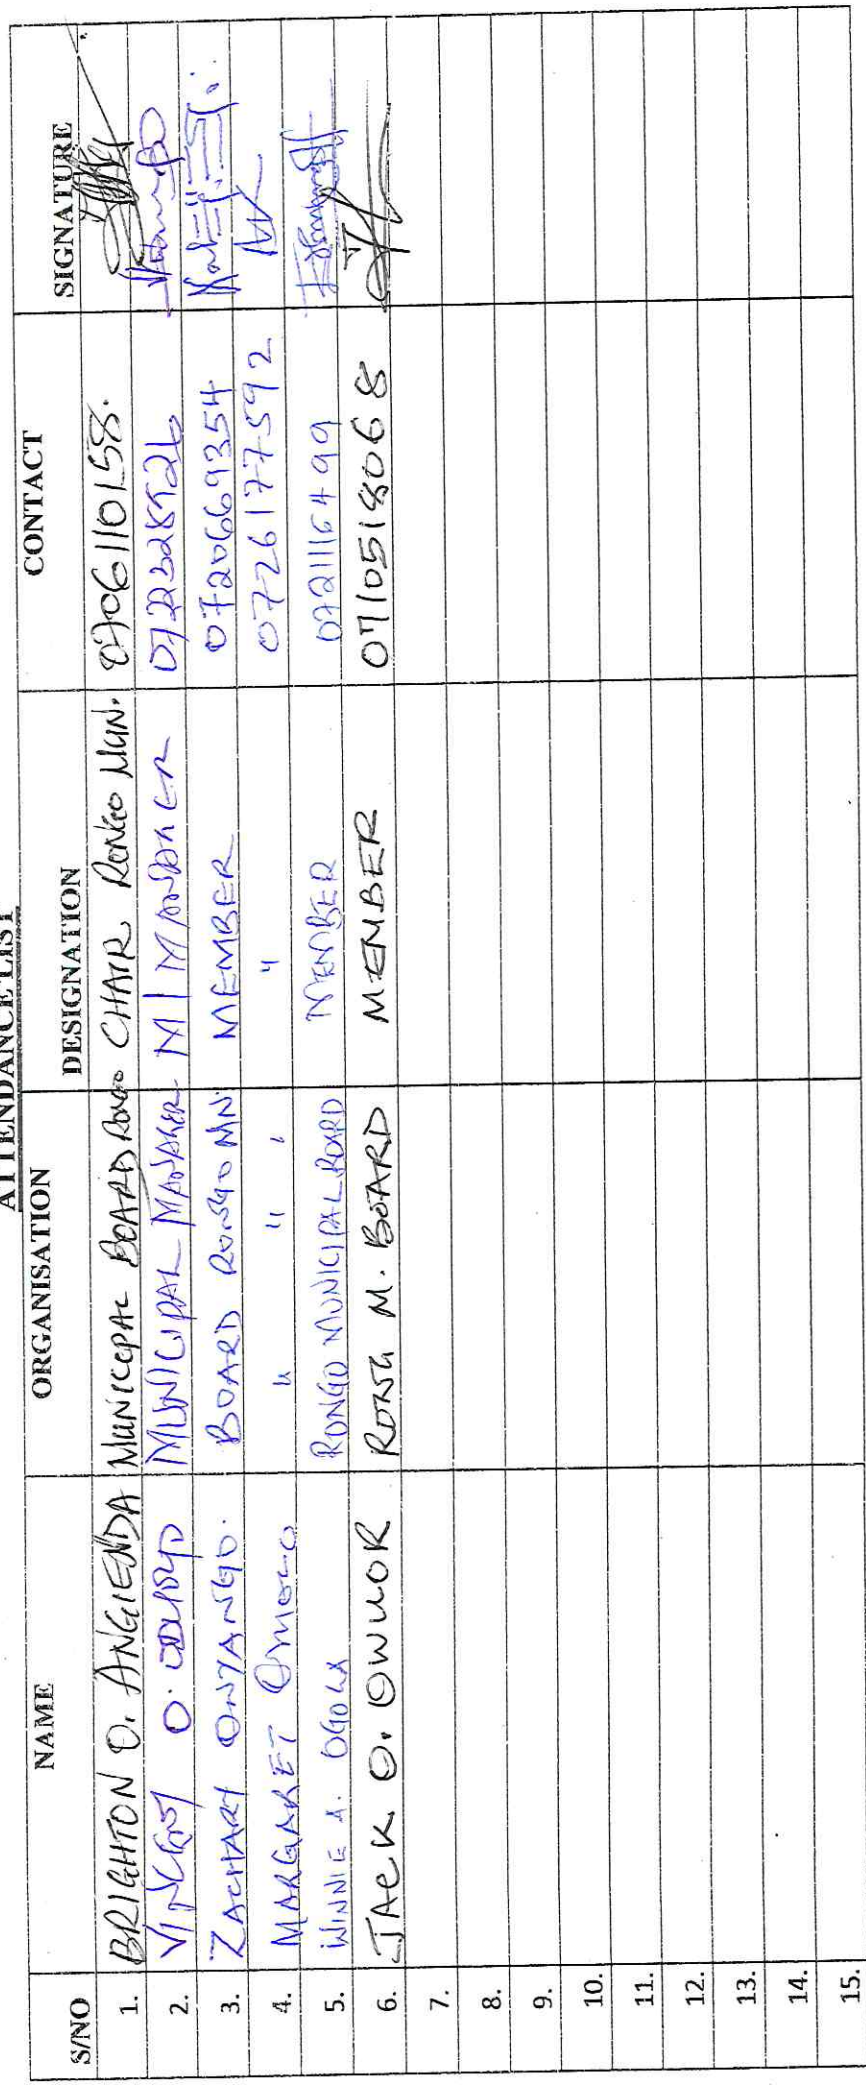 ATTENDANCE LIST
S/NO NAME ORGANISATION DESIGNATION CONTACT SIGNATURE
1. BRIGHTON O. ANGIENDA MUNICIPAL BOARD Rongo CHAIR RONGO MUN. 0706110158.
2. VINCENT O. MUNICIPAL MANAGER M/MANAGER
3. ZACHARY ONYANGO. BOARD RONGO MN. MEMBER 0720669354
4. MARGARET OMOLO " " " " 0726177592
5. WINNIE A. OGOLA RONGO MUNICIPAL BOARD MEMBER 0721116499
6. JACK O. OWUOR RONGO M. BOARD MEMBER 0710518068
7.
8.
9.
10.
11.
12.
13.
14.
15.